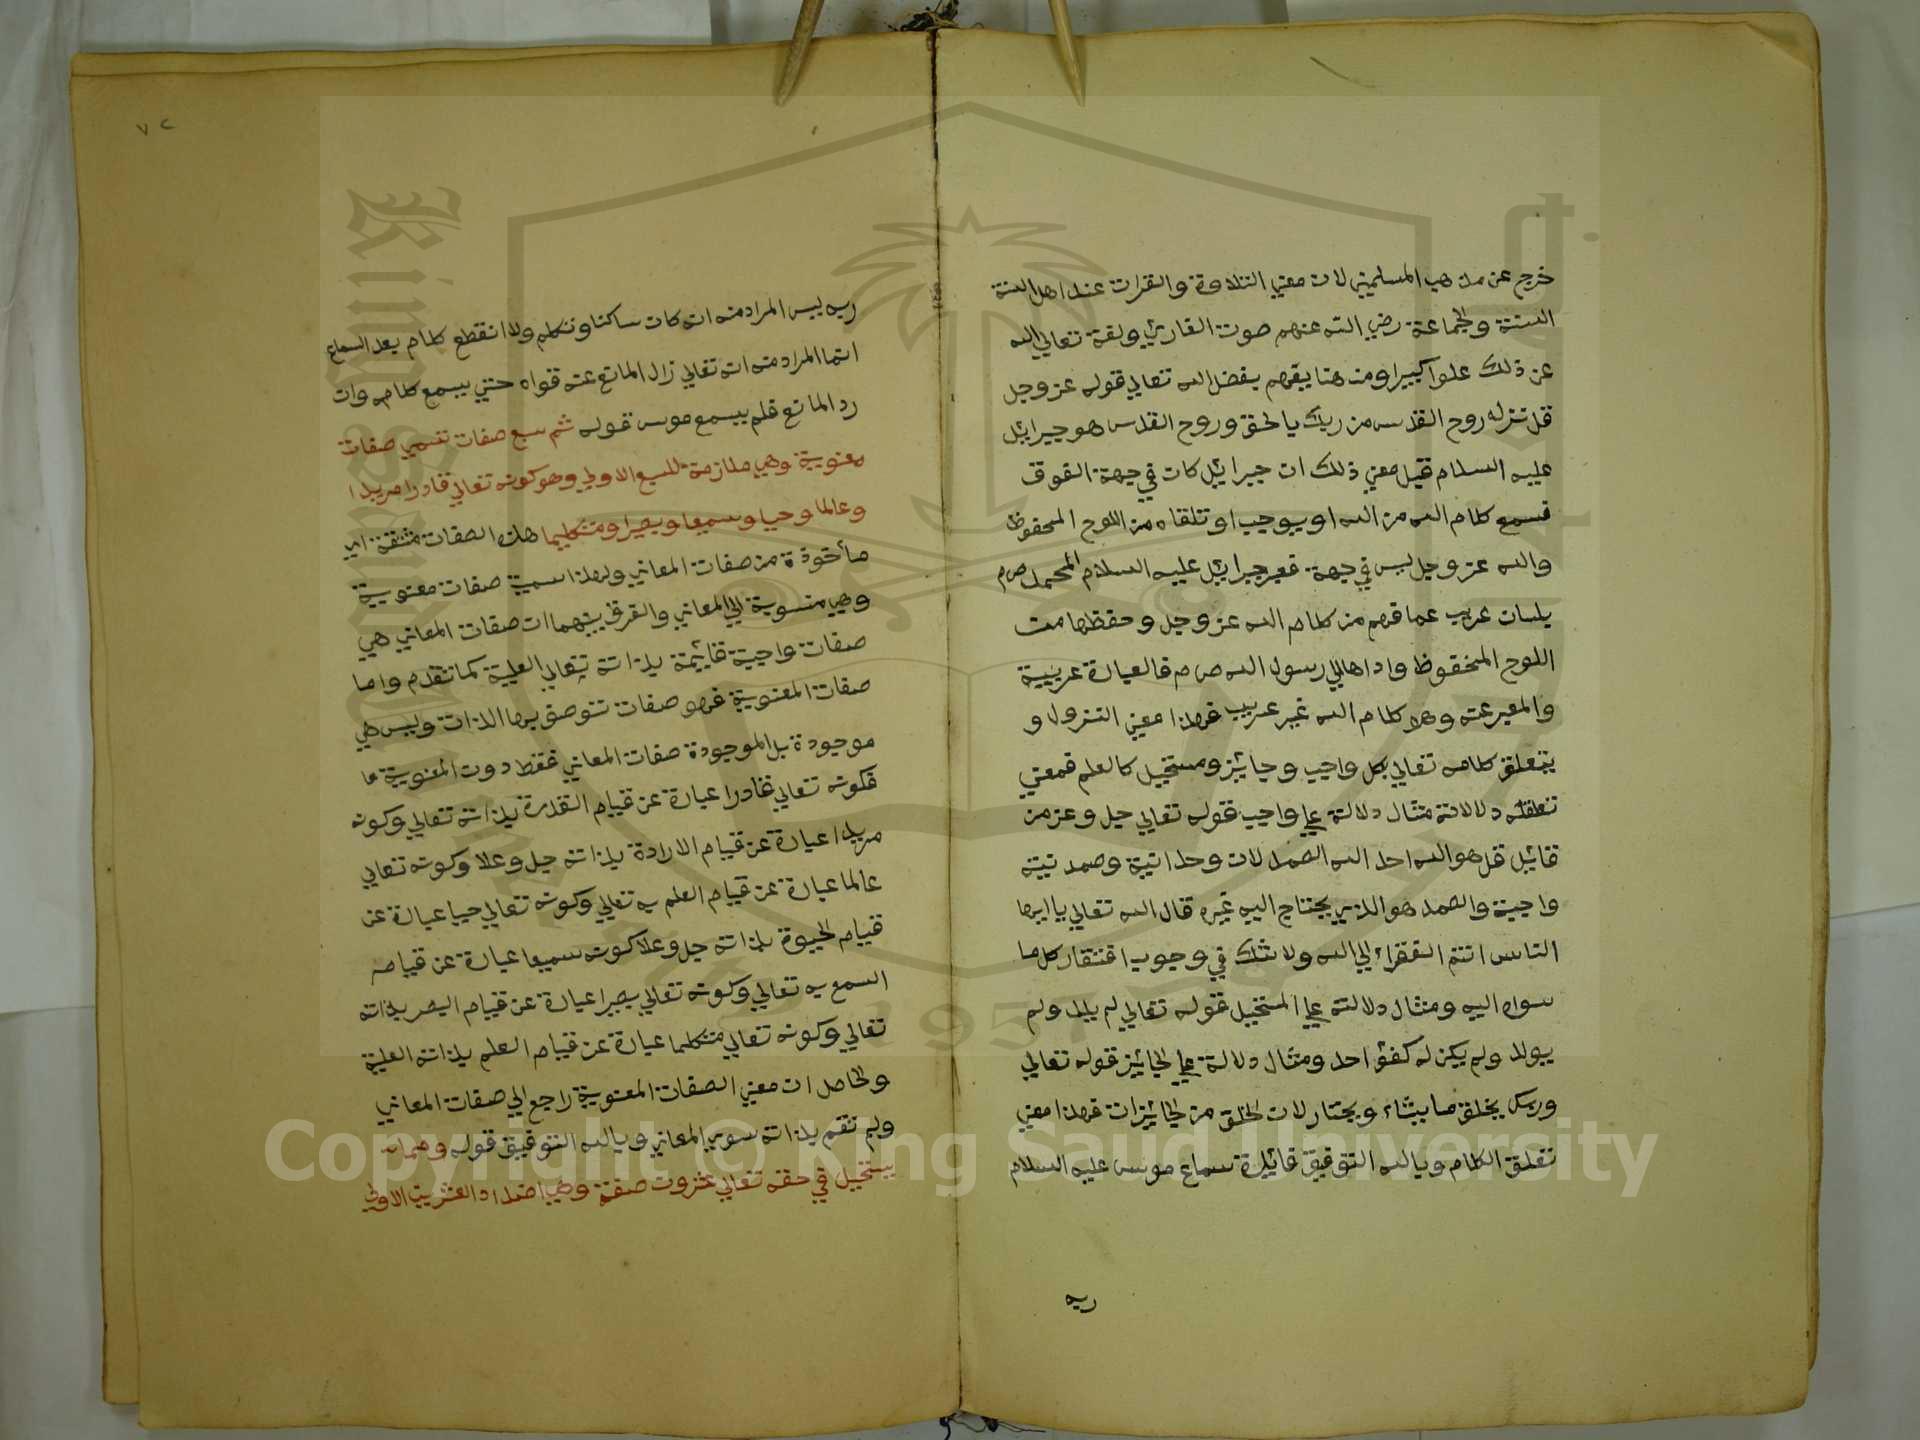 خرج عن مذهب المسلمين لان معني التلاوة والقران عند اهل السنة
السنة والجماعة رضي الله عنهم صوت القارئ ولغة تعالي الله
عن ذلك علوا كبيرا ومن هنا يفهم بفضل الله تعالي قوله عز وجل
قل نزله روح القدس من ربك بالحق وروح القدس هو جبرائيل
عليه السلام قيل معني ذلك ان جبرائيل كان في جهة الفوق
فسمع كلام الله من الله او بوحيب او تلقاه من اللوح المحفوظ
والله عز وجل ليس في جهة فعبر جبرائيل عليه السلام لمحمد ص م
بلسان عربي عما فهم من كلام الله عز وجل وحفظها من
اللوح المحفوظ واداها الي رسول الله ص م فالعبارة عربية
والمعبر عنه وهو كلام الله غير عربي فهذا معني التنزول و
يتعلق كلامه تعالي بكل واجب وجائز ومستحيل كالعلم فمعني
تعلقه دلالاته مثال دلالته علي واجب قوله تعالي جل وعز من
قائل قل هو الله احد الله الصمد لان وحدانية وصمد نيته
واجبة والصمد هو الذي يحتاج اليه غيره قال الله تعالي يا ايها
الناس انتم الفقراء الي الله ولا شك في وجوب افتقار كل ما
سواه اليه ومثال دلالته علي المستحيل قوله تعالي لم يلد ولم
يولد ولم يكن له كفؤ احد ومثال دلالة علي الجائز قوله تعالي
وربك يخلق ما يشاء ويختار لان الخلق من الجائزات فهذا معني
تعلق الكلام وبالله التوفيق قائلة سماع موسي عليه السلام
ربه
٧٢
ربه ليس المراد منه انه كان ساكتا وتكلم ولا انقطع كلام بعد السماع
انما المراد منه انه تعالي زال المانع عنه قواه حتي يسمع كلامه وان
رد المانع فلم يسمع موسي قوله ثم سبع صفات تسمي صفات
معنوية وهي ملازمة للسبع الاولي وهو كونه تعالي قادرا مريدا
وعالما وحيا وسميعا وبصيرا ومتكليما هذه الصفات مشتقة اي
مأخوذة من صفات المعاني ولهذا سمية صفات معنوية
وهي منسوبة الي المعاني والفرق بينهما ان صفات المعاني هي
صفات واجبة قائمة بذاته تعالي العلية كما تقدم واما
صفات المعنوية فهو صفات تتوصف بها الذات وليس هي
موجودة بل الموجودة صفات المعاني فقط دون المعنوية
فكونه تعالي قادرا عبارة عن قيام القدرة بذاته تعالي وكونه
مريدا عبارة عن قيام الارادة بذاته جل وعلا وكونه تعالي
عالما عبارة عن قيام العلم به تعالي وكونه تعالي حيا عبارة عن
قيام الحيوة بذاته جل وعلا كونه سميعا عبارة عن قيامه
السمع به تعالي وكونه تعالي بصيرا عبارة عن قيام البصر بذاته
تعالي وكونه تعالي متكليما عبارة عن قيام العلم بذاته العلية
والحاصل ان معني الصفات المعنوية راجع الي صفات المعاني
ولم تقم بذاته سوي المعاني وبالله التوفيق قوله ومما
يستحيل في حقه تعالي عشرون صفة وهي اضداد العشرين الاولي